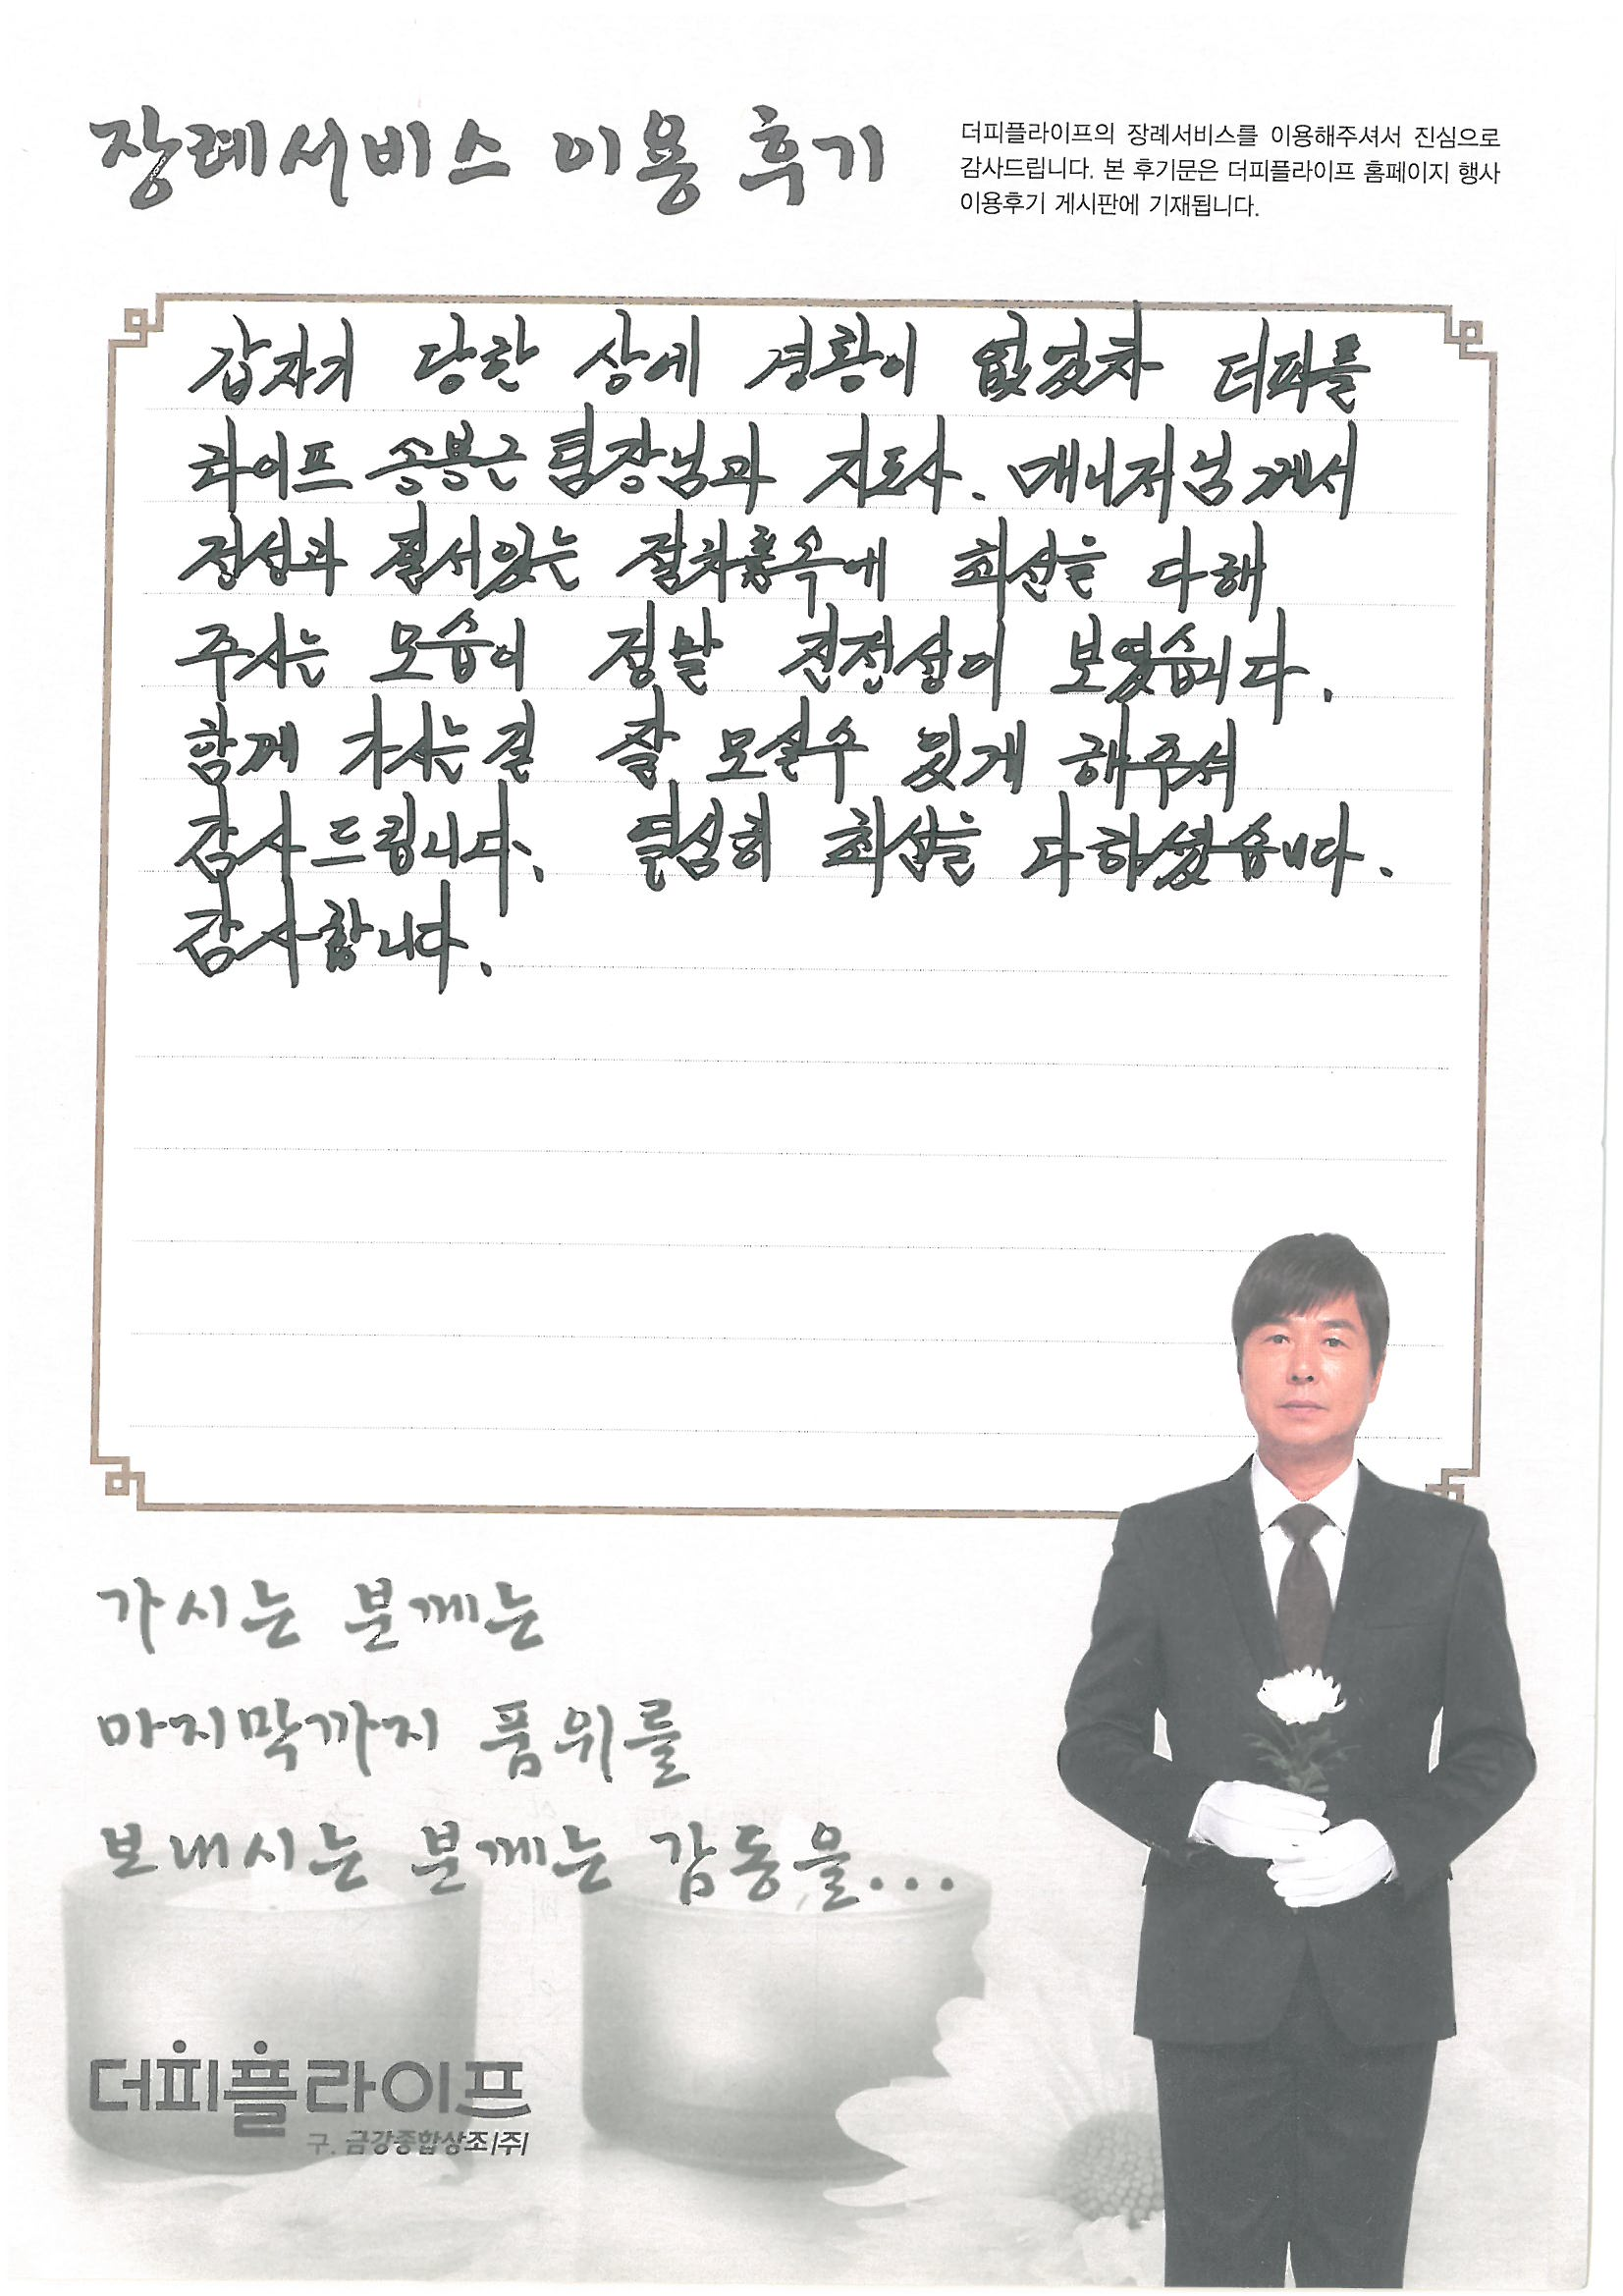 장례서비스 이용 후기
더피플라이프의 장례서비스를 이용해주셔서 진심으로
감사드립니다. 본 후기문은 더피플라이프 홈페이지 행사
이용후기 게시판에 기재됩니다.
갑자기 당한 상에 경황이 없었차 더피플
라이프 송봉근 팀장님과 지도사. 매니저님께서
정성과 질서있는 절차 속에 최선을 다해
주시는 모습이 정말 진전성이 보였습니다.
함께 가시는길 잘 모실수 있게 해주셔
감사드립니다. 열심히 최선을 다하셨습니다.
감사합니다.
가시는 분께는
마지막까지 품위를
보내시는 분께는 감동을...
더피플라이프
구. 금강종합상조(주)